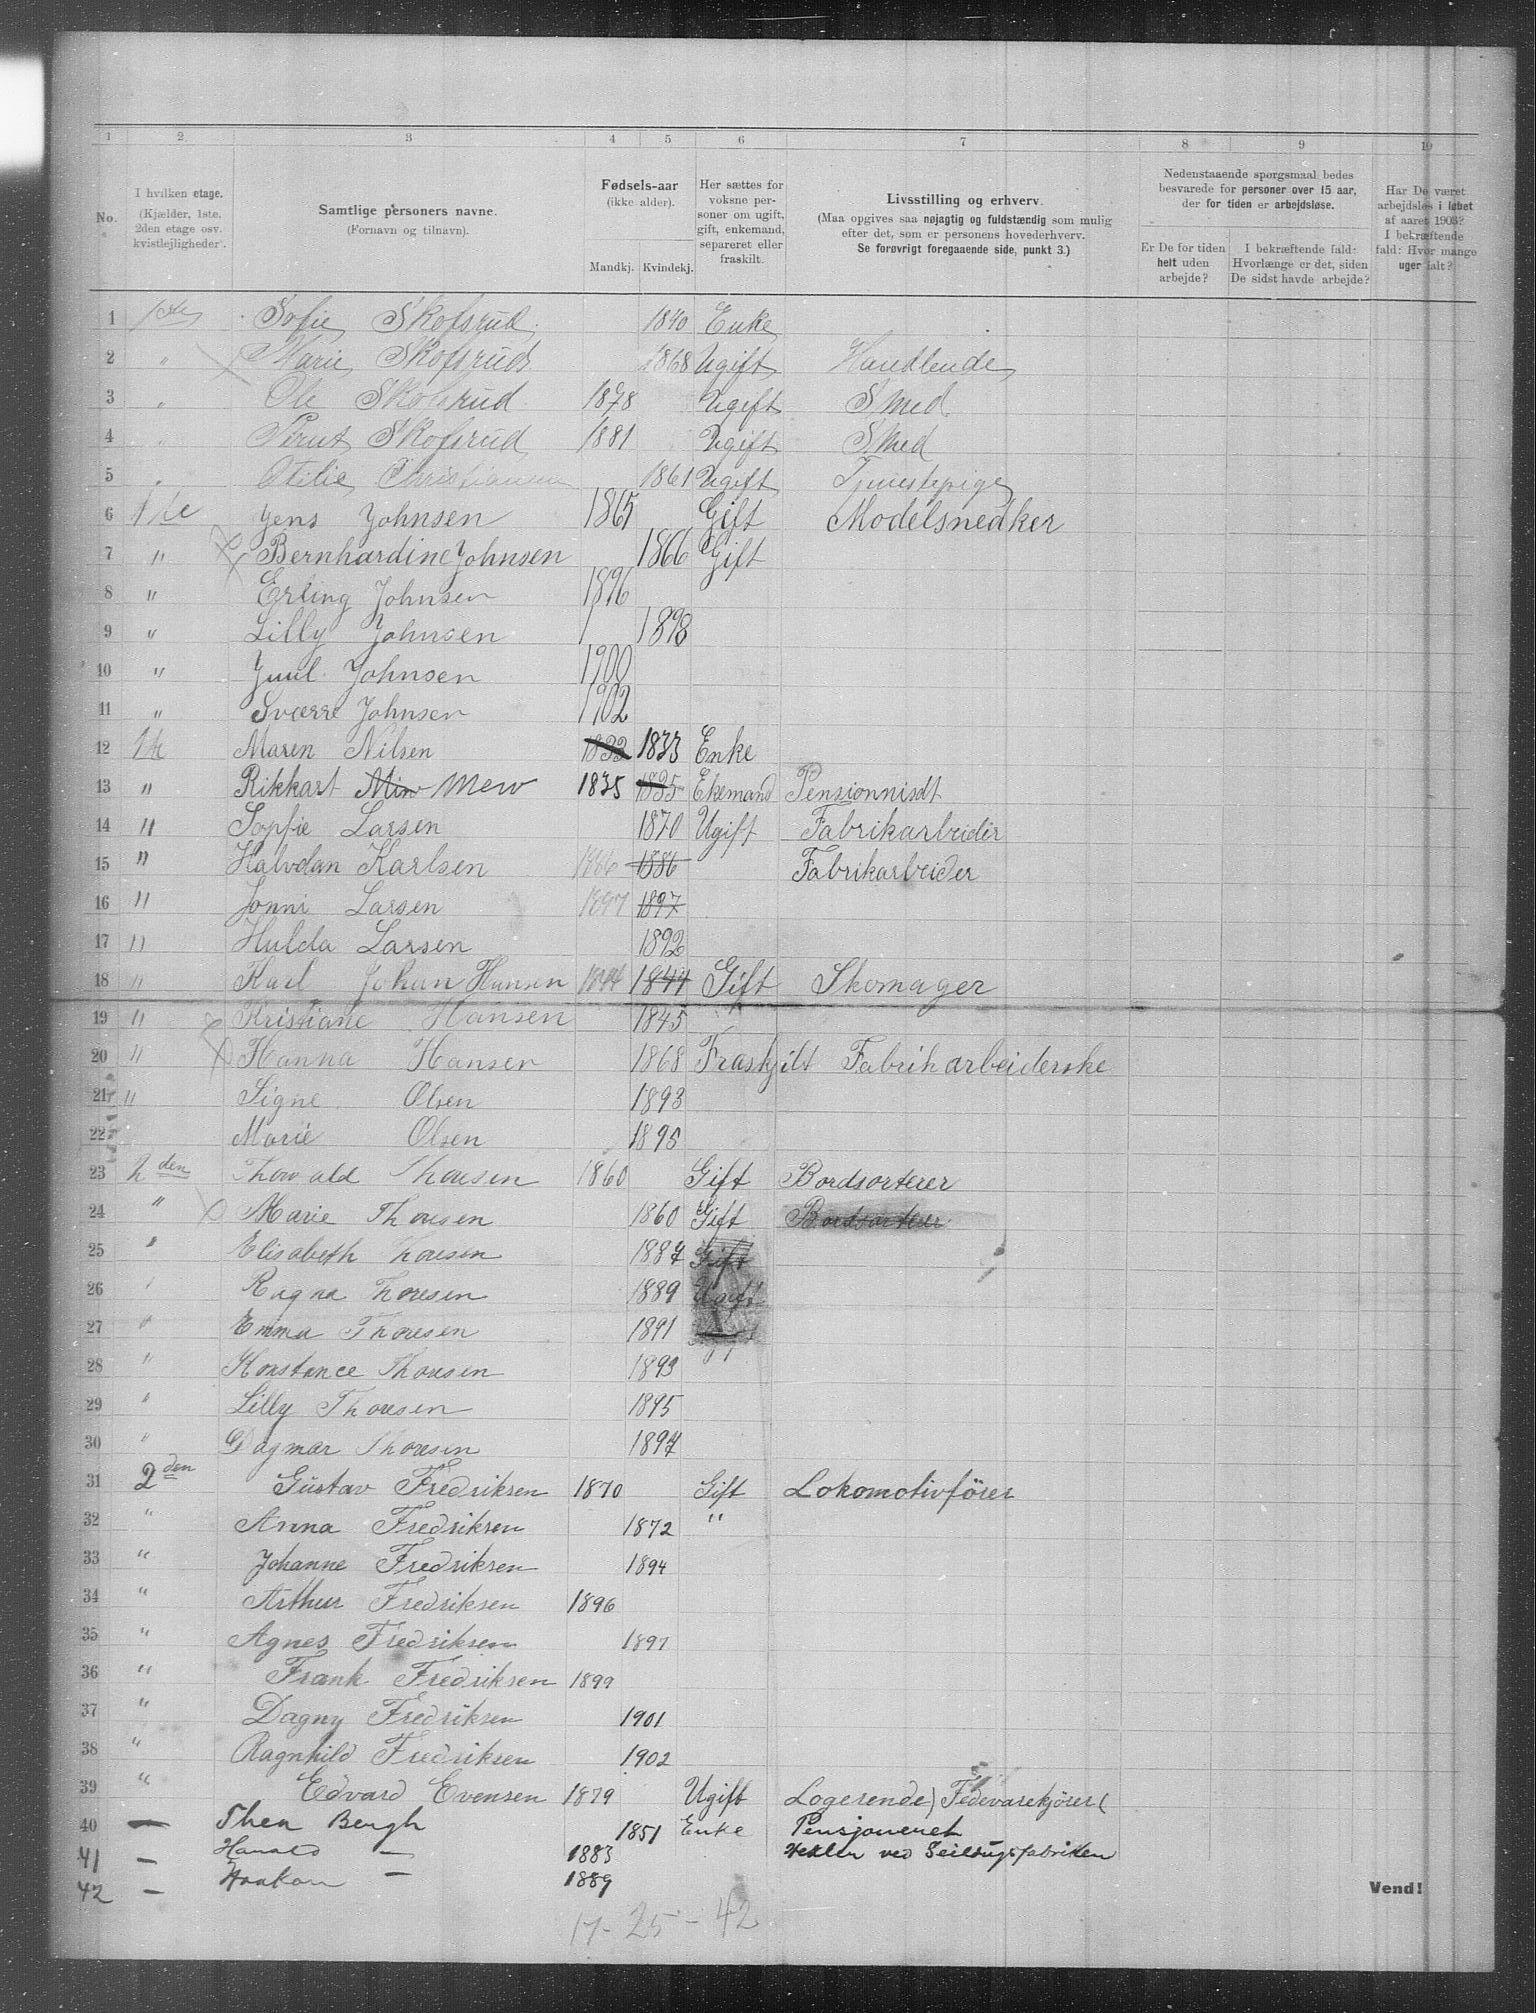 1 2 3 4 5 6 7 8 9 10
No.
I hvilken etage.
(Kjælder, 1ste,
2den etage osv.
kvistlejligheder).
Samtlige personers navne.
(Fornavn og tilnavn).
Fødsels-aar
(ikke alder).
Mandkj. Kvindekj.
Her sættes for
voksne per-
soner om ugift,
gift, enkemand,
separeret eller
fraskilt.
Livsstilling og erhverv.
(Maa opgives saa nøjagtig og fuldstændig som mulig
efter det, som er personens hovederhverv.
Se forøvrigt foregaaende side, punkt 3.)
Nedenstaaende spørgsmaal bedes
besvarede for personer over 15 aar,
der for tiden er arbejdsløse.
Er De for tiden
helt uden
arbejde?
I bekræftende fald:
Hvorlænge er det, siden
De sidst havde arbejde?
Har De været
arbejdsløs i løbet
af aaret 1903?
I bekræftende
fald: Hvor mange
uger ialt?
1 1ste Sofie Skofsrud 1840 Enke
2 " Marie Skofsrud 1868 Ugift Handlende
3 " Ole Skofsrud 1878 Ugift Smed
4 " Skofsrud 1881 Ugift Smed
5 " Otilie Christiansen 1861 Ugift Tjenestepige
6 1ste Jens Johnsen 1865 Gift Modelsnedker
7 " Bernhardine Johnsen 1866 Gift
8 " Erling Johnsen 1896
9 " Lilly Johnsen 1898
10 " Juul Johnsen 1900
11 " Sværre Johnsen 1902
12 1ste Maren Nilsen 1833 1833 Enke
13 " Rikkart Min Mew 1835 1835 Ekemand Pensionnisdt
14 " Sopfie Larsen 1870 Ugift Fabrikarbeider
15 " Halvdan Karlsen 1886 1886 Fabrikarbeider
16 " Jonni Larsen 1897 1897
17 " Hulda Larsen 1892
18 " Karl Johan Hansen 1844 1844 Gift Skomager
19 " Kristiane Hansen 1845
20 " Hanna Hansen 1868 Fraskjilt Fabrikarbeiderske
21 " Signe Olsen 1893
22 Marie Olsen 1895
23 2den Thorvald Thoresen 1860 Gift Bordsorterer
24 " Marie Thoresen 1860 Gift Bordsorterer
25 " Elisabeth Thoresen 1887 Gift
26 " Ragna Thoresen 1889 Ugift
27 " Emma Thoresen 1891
28 " Konstance Thoresen 1893
29 " Lilly Thoresen 1895
30 " Dagmar Thoresen 1897
31 2den Gustav Fredriksen 1870 Gift Lokomotivfører
32 " Anna Fredriksen 1872 "
33 " Johanne Fredriksen 1894
34 " Arthur Fredriksen 1896
35 " Agnes Fredriksen 1897
36 " Frank Fredriksen 1899
37 " Dagny Fredriksen 1901
38 " Ragnhild Fredriksen 1902
39 " Edvard Evensen 1879 Ugift Logerende) Fedevarekjører(
40 — Thea Bergh 1851 Enke Pensjoneret
41 — Harald — 1883 ved Seildugsfabriken
42 — Haakon — 1889
Vend!
17 - 25 - 42